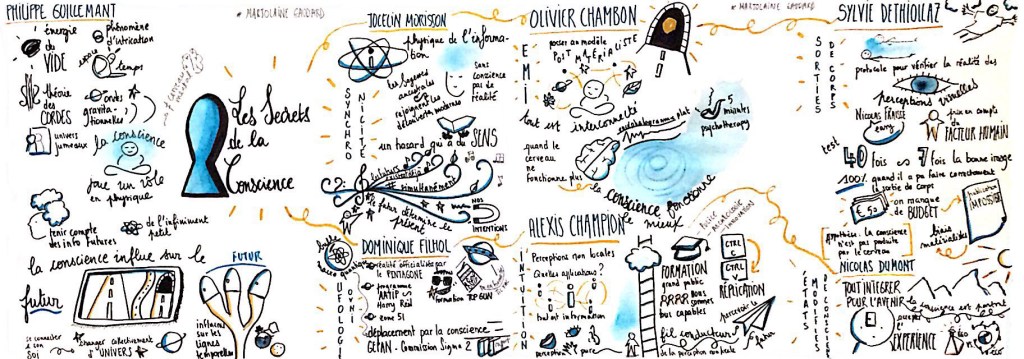 PHILIPPE GUILLEMANT
énergie
du
VIDE
phénomène
d'intrication
espace
temps
théorie
des
CORDES
ondes
gravita-
tionnelles
univers
jumeaux
la conscience
joue un rôle
en physique
Les Secrets
de la
Conscience
tenir compte
des info futures
de l'infiniment
petit
la conscience influe sur le
futur
FUTUR
se connecter
à son
Soi
changer collectivement
d'UNIVERS
influence
sur les
lignes
temporelles
# MARJOLAINE GAUDARD
JOCELIN MORISSON
physique de l'informa-
tion
SYNCHRO
NICITÉ
les sagesses
ancestrales
rejoignent les
découvertes modernes
Sans
conscience
pas de
réalité
un hasard qui a du SENS
simultanément
le futur détermine le
présent
NOS
INTENTIONS
DOMINIQUE FILHOL
UFOLOGIE
réalité officialisée par
le PENTAGONE
programme
AATIP
zone 51
formation
déplacement par la conscience
GEPAN - Commission Sigma 2
OLIVIER CHAMBON
# MARJOLAINE GAUDARD
EMI
passer au modèle
POST MATÉRIALISTE
tout est interconnecté
quand le
cerveau
ne fonctionne plus
encéphalogramme plat
5
minutes
psychotherapy
la conscience fonctionne
le mieux
ALEXIS CHAMPION
INTUITION
Perceptions non locales
Quelles applications ?
tout est information
FORMATION
grand public
nous sommes
tous capables
CTRL
C
CTRL
V
RÉPLICATION
fil conducteur
SYLVIE DETHIOLLAZ
SORTIES
DE CORPS
protocole pour vérifier la réalité des
perceptions visuelles
NICOLAS FRAISSE
prise en compte
du
FACTEUR HUMAIN
test
40 fois 7 fois la bonne image
100% quand il a pu faire correctement
la sortie de corps
on manque
de BUDGET
publication
IMPOSSIBLE
biais
matérialistes
hypothèse : la conscience
n'est pas produite
par le cerveau
NICOLAS DUMONT
ÉTATS
MODIFIÉS
TOUT INTÉGRER
POUR L'AVENIR
l'EXPÉRIENCE